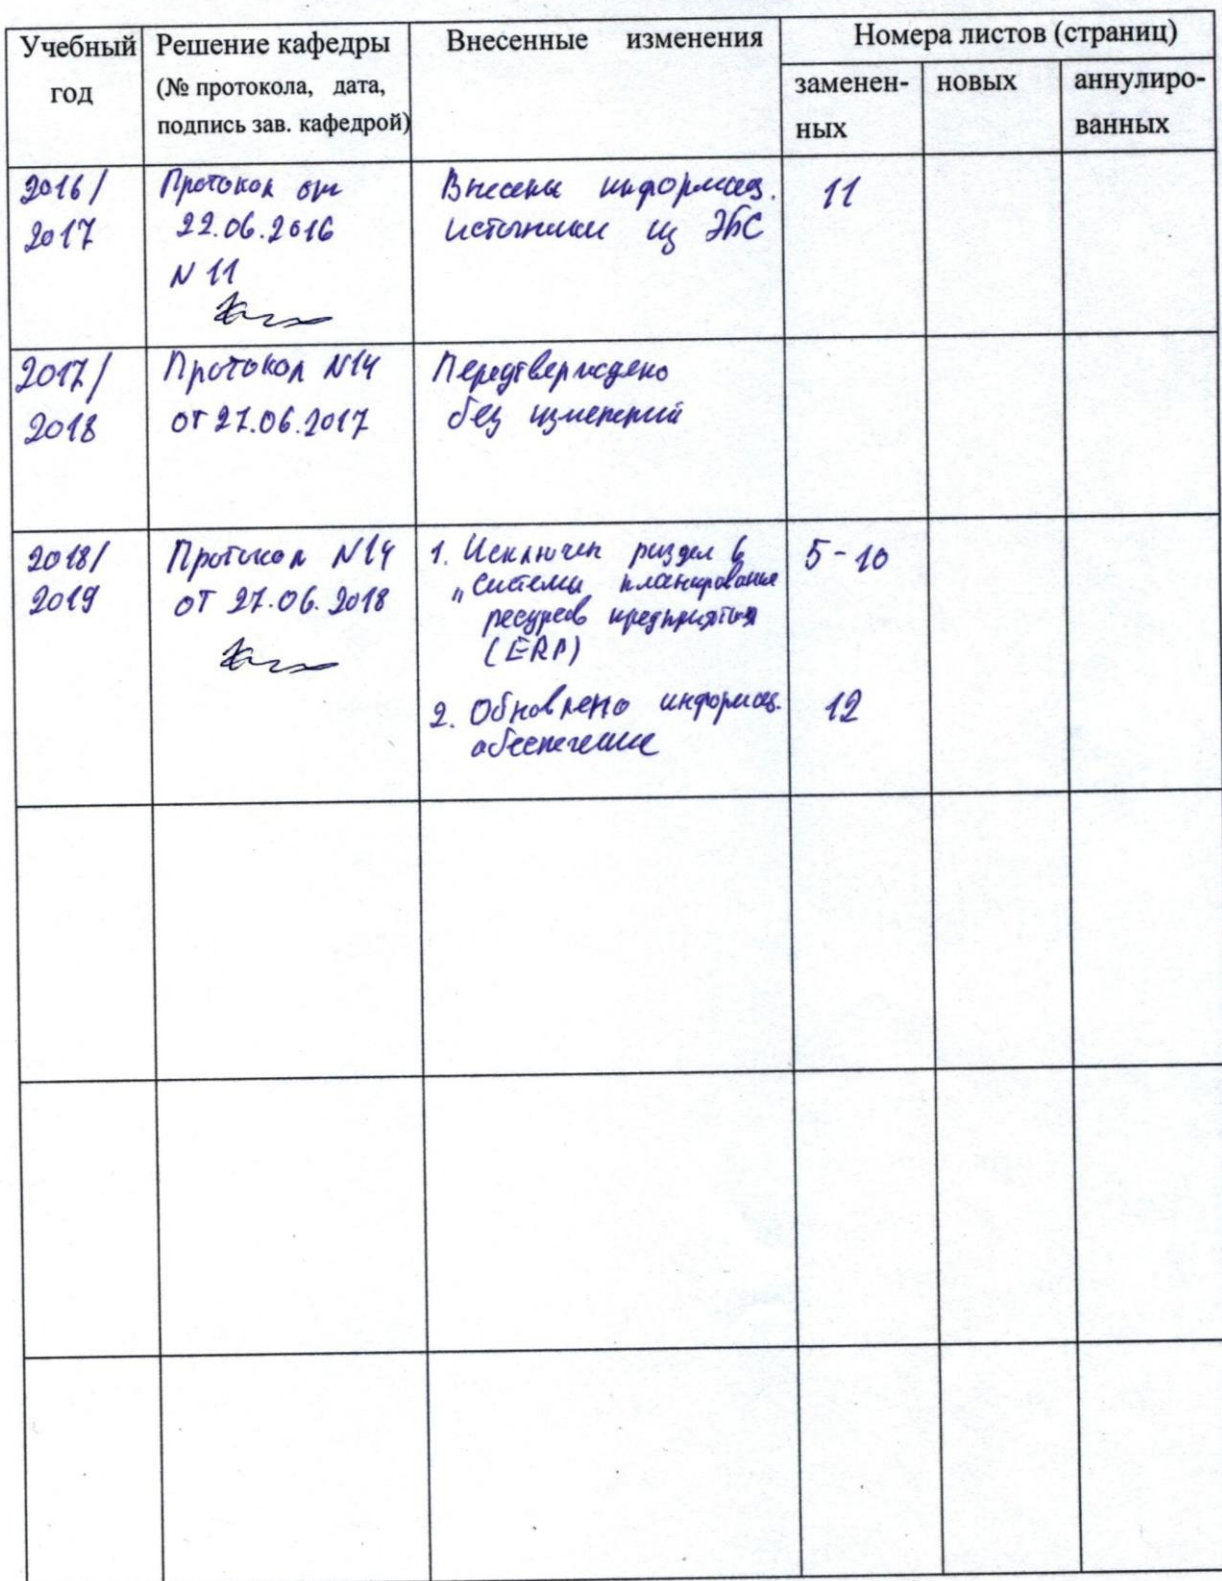 Учебный год
Решение кафедры
(№ протокола, дата,
подпись зав. кафедрой)
Внесенные изменения
Номера листов (страниц)
заменен-
ных
новых
аннулиро-
ванных
2016/
2017
Протокол от
22.06.2016
N 11
Внесены информац.
источники из ЭБС
11
2017/
2018
Протокол N14
от 27.06.2017
Передтверждено
без изменений
2018/
2019
Протокол N14
от 27.06.2018
1. Исключен раздел 6
„Системы планирования
ресурсов предприятия
(ERP)
5-10
2. Обновлено информац.
обеспечение
12